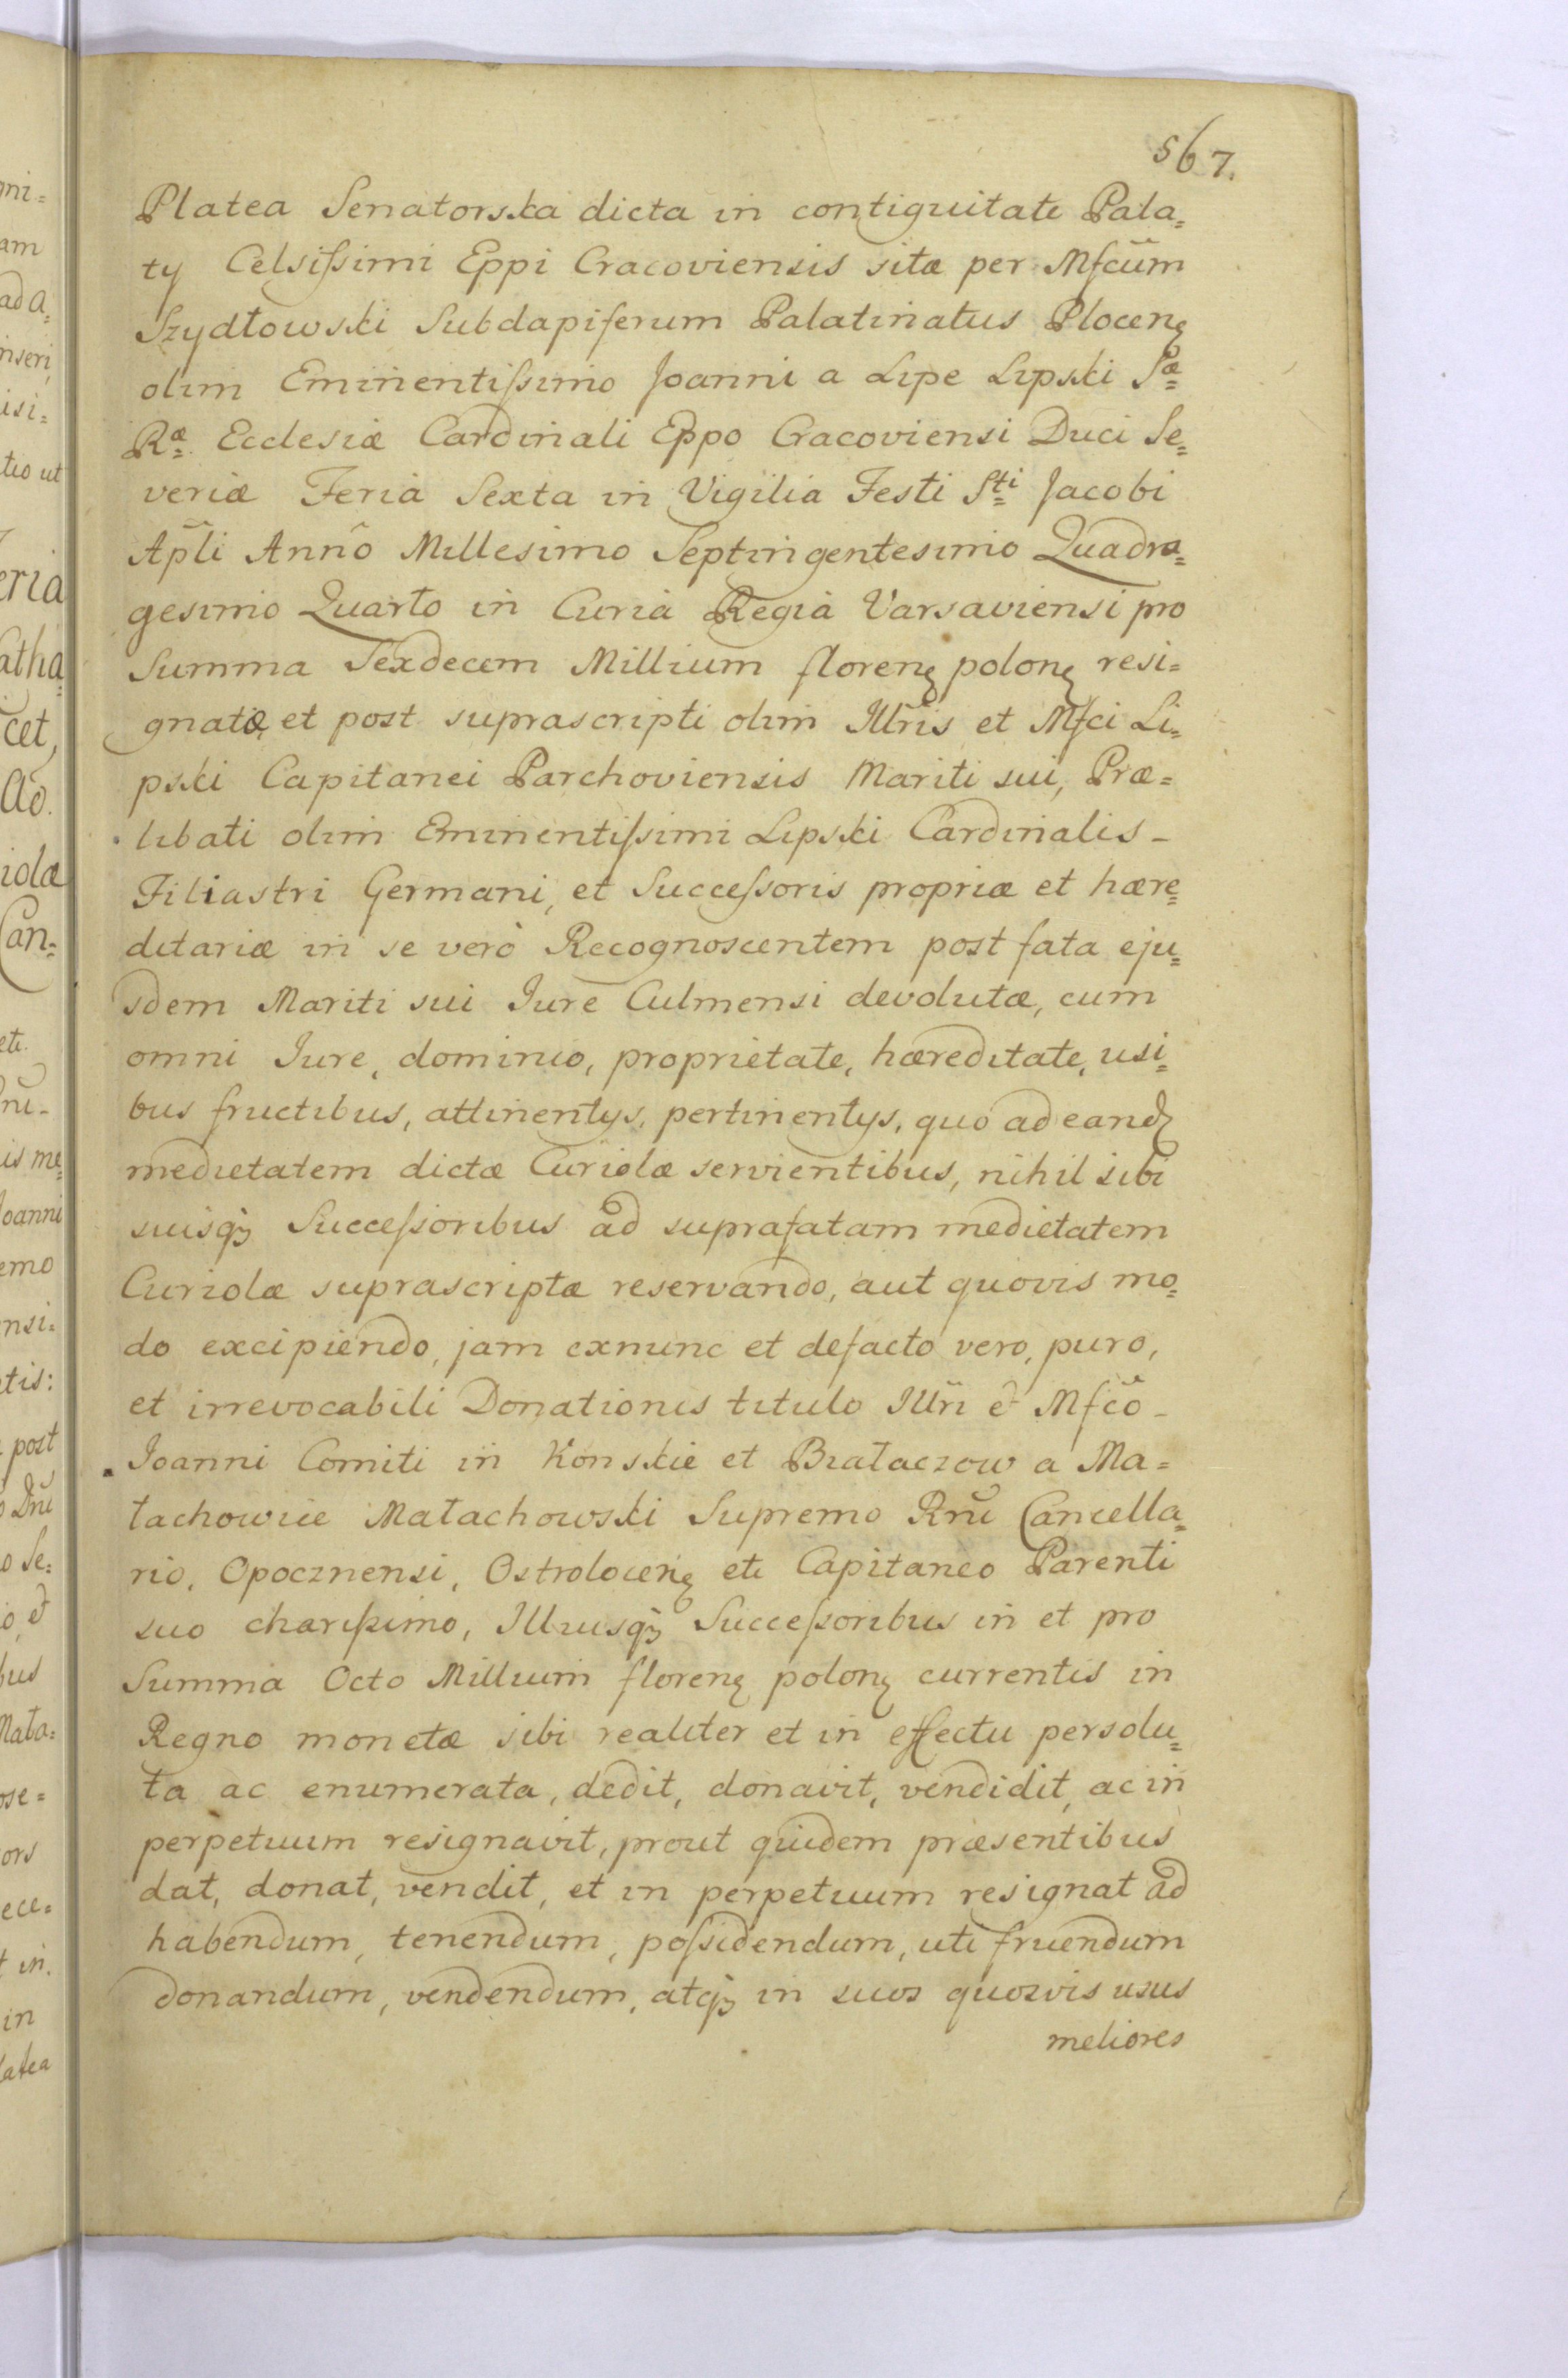 567.
Platea Senatorska dicta in contiguitate Pala=
ty Celsiſsimi Eppi Cracoviensis sitæ per Mfcūm
Szydłowski Subdapiferum Palatinatus Plocenę
olim Eminentiſsimo Joanni a Lipe Lipski Sæ
Ræ Ecclesiæ Cardinali Eppo Cracoviensi Duci Se=
veriæ Feria Sexta in Vigilia Festi Sti Jacobi
Apli Anno Millesimo Septingentesimo Quadra=
gesimo Quarto in Curia Regia Varsaviensi pro
Summa Sexdecem Millium florenę polonę resi=
gnatæ, et post suprascripti olim Illris et Mfci Li=
pski Capitanei Parchoviensis Mariti sui, Præ=
libati olim Eminentiſsimi Lipski Cardinalis -
Filiastri Germani, et Succeſsoris propriæ et hære=
ditariæ in se verò Recognoscentem post fata eju=
sdem Mariti sui Iure Culmensi devolutæ, cum
omni Iure, dominio, proprietate, hæreditate, usi=
bus fructibus, attinentys, pertinentys, quo ad eandȝ
medietatem dictæ Curiolæ servientibus, nihil sibi
suisqȝ Succeſsoribus ad suprafatam medietatem
Curiolæ suprascriptæ reservando, aut quovis mo=
do excipiendo, jam exnunc et defacto vero, puro,
et irrevocabili Donationis titulo Illri et Mfcō -
Ioanni Comiti in Konskie et Białaczow a Ma=
łachowice Małachowski Supremo Rni Cancella=
rio, Opocznensi, Ostrolocenę etc Capitaneo Parenti
suo chariſsimo, Illiusqȝ Succeſsoribus in et pro
Summa Octo Millium florenę polonę currentis in
Regno monetæ sibi realiter et in effectu persolu=
ta ac enumerata, dedit, donavit, vendidit, ac in
perpetuum resignavit, prout quidem præsentibus
dat, donat, vendit, et in perpetuum resignat ad
habendum, tenendum, poſsidendum, uti fruendum
donandum, vendendum, atqȝ in suos quosvis usus
meliores